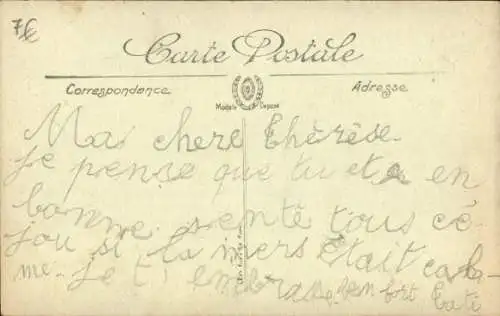 76
Carte Postale
Correspondance
Adresse
Modèle Déposé
Mai chere Thérèse
je pense que tu et en
bonne senté tous cé
jou si la mers était cal-
me. je t'embrasse bien fort